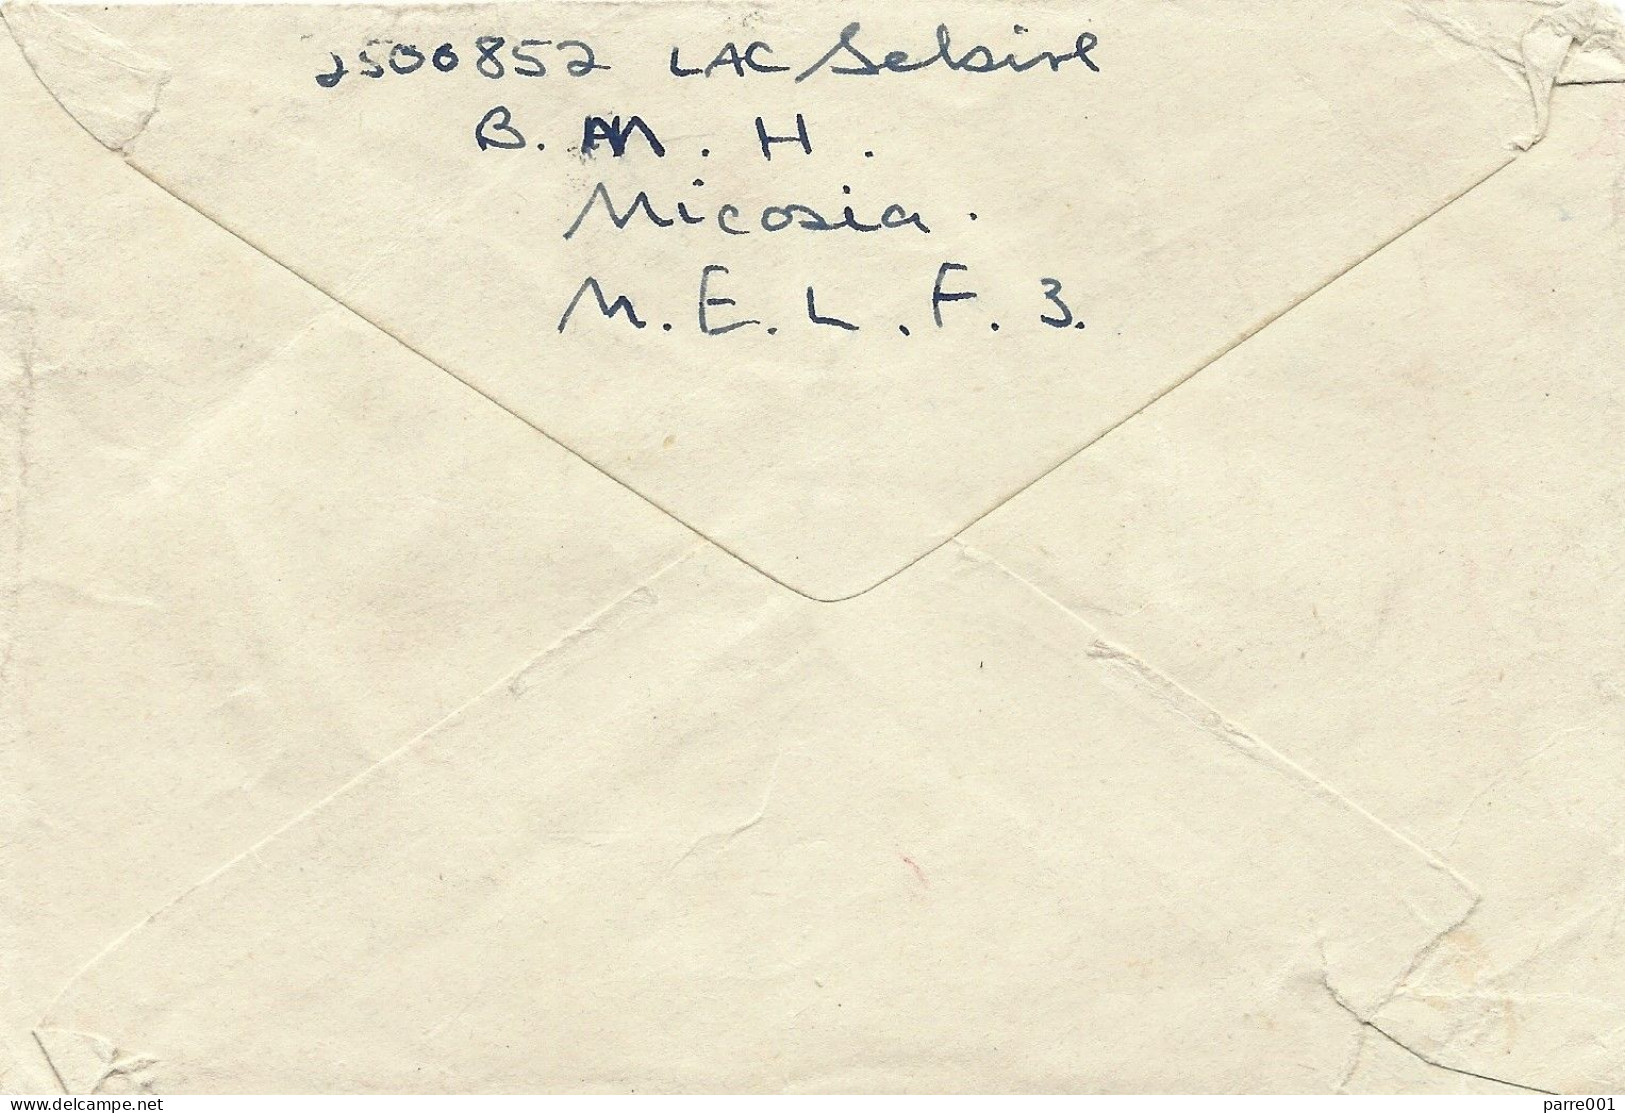 2500852 LAC Sebire
B. M. H.
Nicosia.
M. E. L. F. 3.
www.delcampe.net
parre001